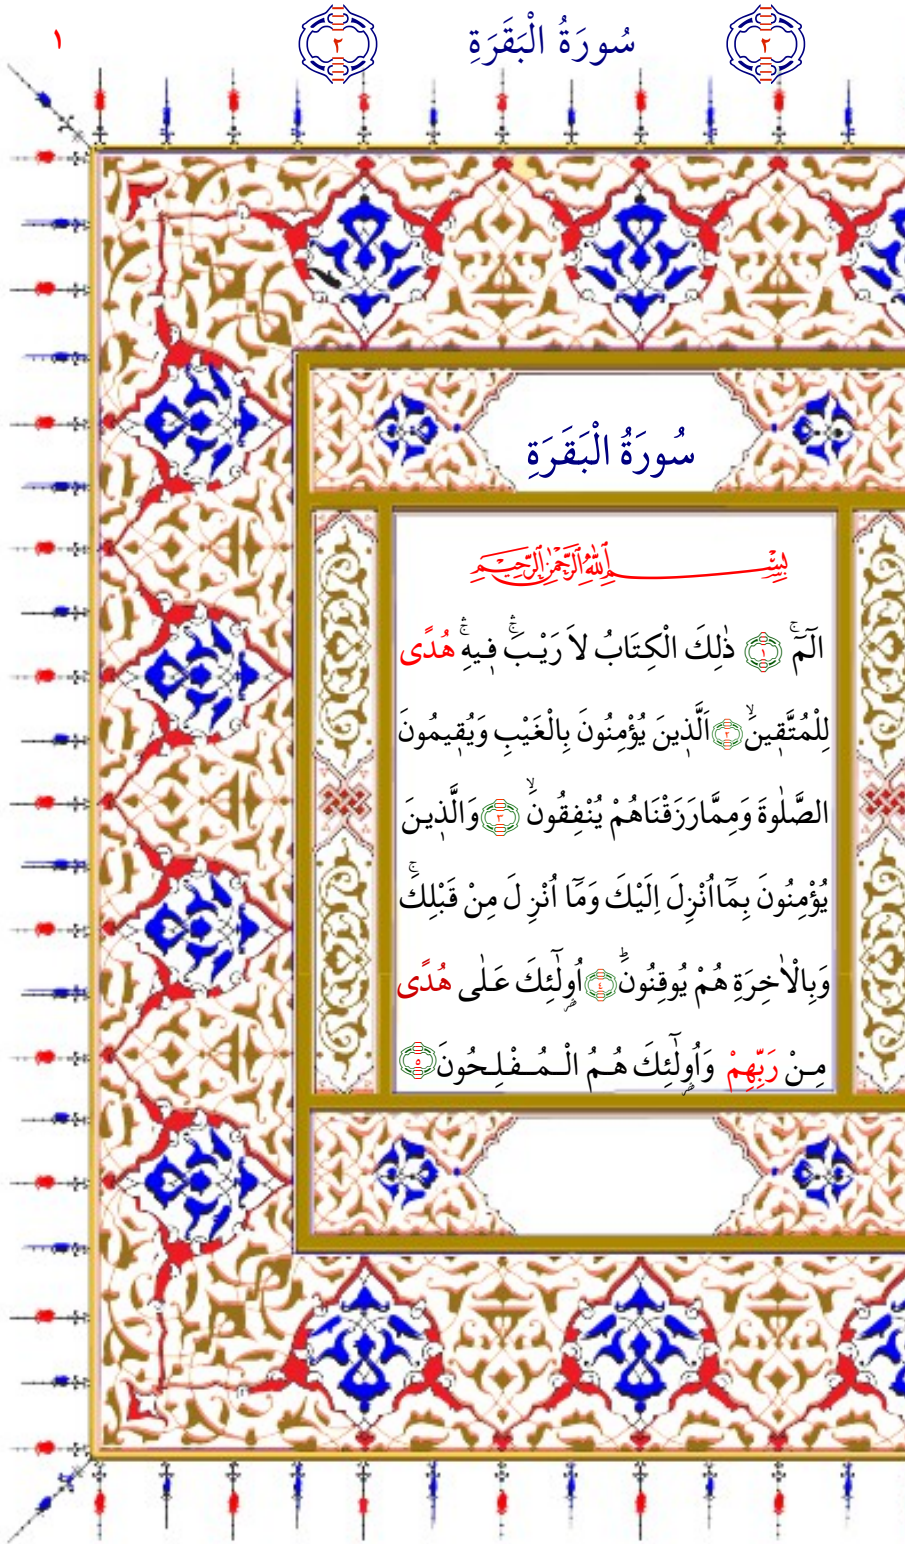 ٢ سُورَةُ الْبَقَرَةِ ٢ ١
سُورَةُ الْبَقَرَةِ
بِسْمِ اللّٰهِ الرَّحْمٰنِ الرَّحِيمِ
الٓمٓۚ ﴿١﴾ ذٰلِكَ الْكِتَابُ لَا رَيْبَۚۛ فِيهِۚۛ هُدًى
لِلْمُتَّقِينَۙ ﴿٢﴾ اَلَّذِينَ يُؤْمِنُونَ بِالْغَيْبِ وَيُقِيمُونَ
الصَّلٰوةَ وَمِمَّا رَزَقْنَاهُمْ يُنْفِقُونَۙ ﴿٣﴾ وَالَّذِينَ
يُؤْمِنُونَ بِمَٓا اُنْزِلَ اِلَيْكَ وَمَٓا اُنْزِلَ مِنْ قَبْلِكَۚ
وَبِالْاٰخِرَةِ هُمْ يُوقِنُونَۜ ﴿٤﴾ اُو۬لٰٓئِكَ عَلٰى هُدًى
مِنْ رَبِّهِمْ وَاُو۬لٰٓئِكَ هُمُ الْمُفْلِحُونَ ﴿٥﴾